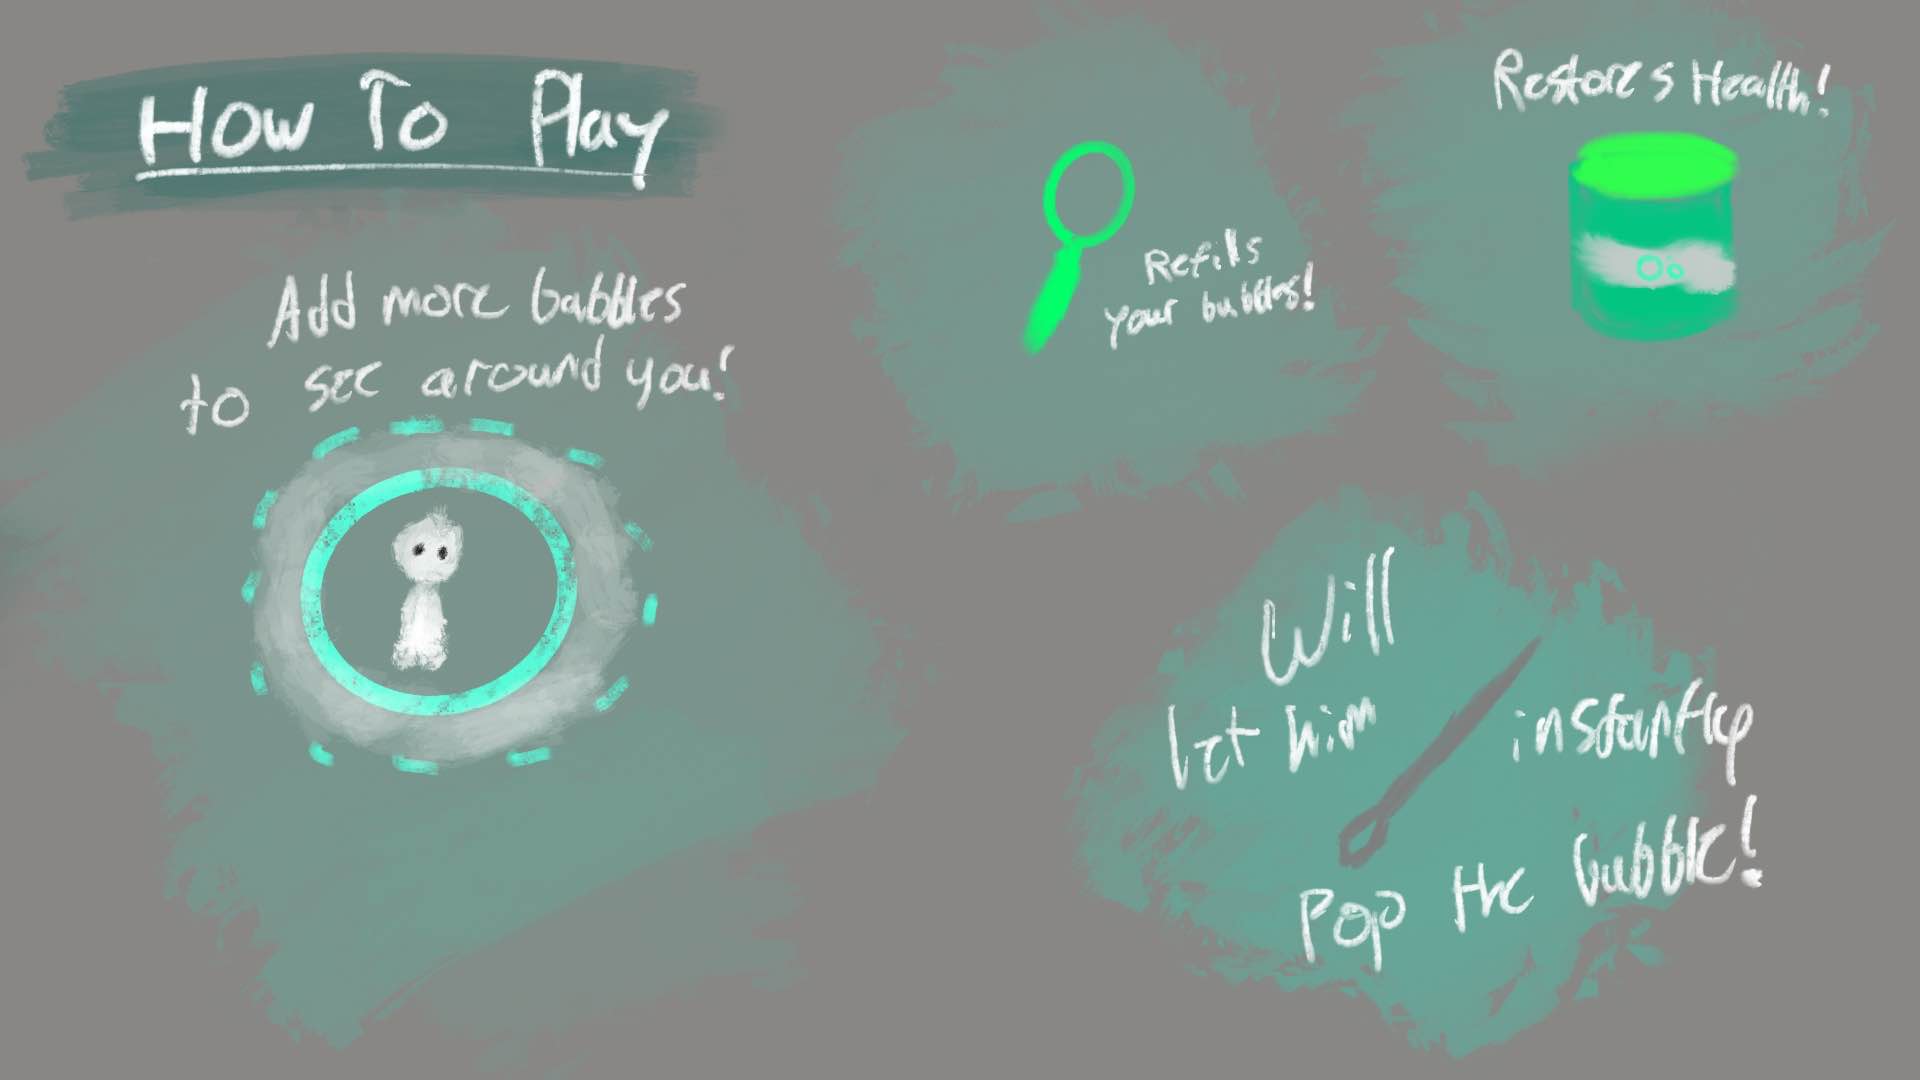 How To Play
Add more bubbles
to see around you!
Refills
your bubbles!
Restores Health!
Will
let him instantly
Pop the bubble!